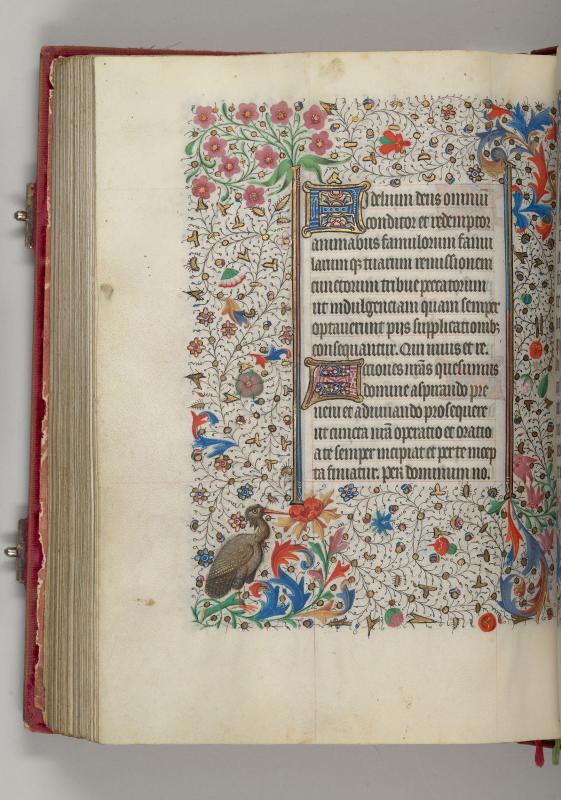 Fidelium deus omniu
conditor et redemptor
animabus famulorum famu
larumqz tuarum remissionem
cunctorum tribue peccatorum
ut indulgenciam quam semper
optauerunt pijs supplicationibz
consequantur. Qui uiuis et re.
Actiones nras quesumus
domine aspirando pre
ueni et adiuuando prosequere
ut cuncta nra operatio et oratio
a te semper incipiat et per te incep
ta finiatur. Per dominum no.